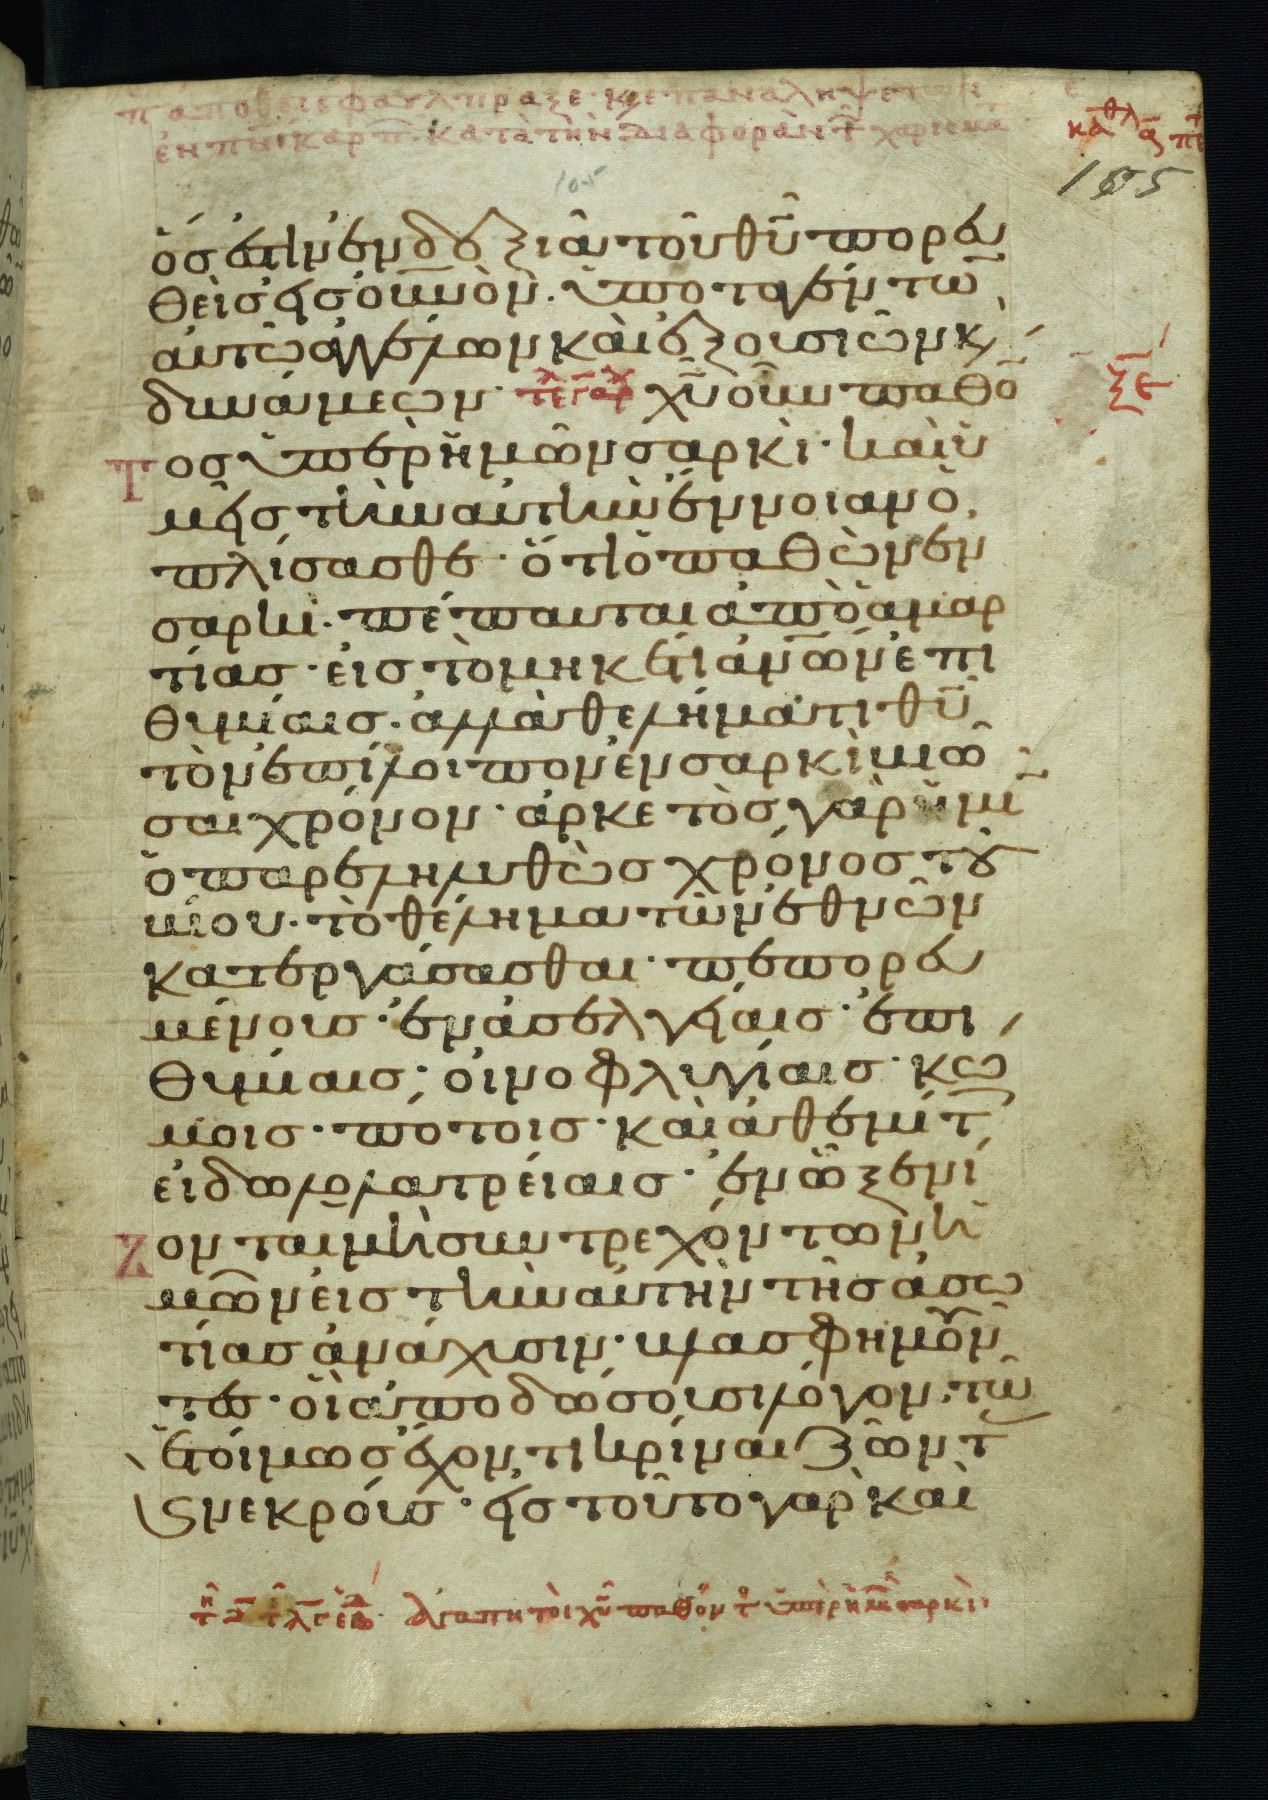 καθλ α πε
105
165
ὅς ἐστιν ἐν δεξιᾶ τοῦ θῦ πορευ
θεὶς εἰς οὐνὸν. ὑποταγέντω
αὐτῶ ἀγγέλων καὶ ἐξουσιῶν κ
δυνάμεων· χῦ οὖν παθό
ξε
τος ὑπὲρ ἡμῶν σαρκὶ· καὶ ὑ
μεῖς τὴν αὐτὴν ἔννοιαν ὁ
πλίσασθε· ὅτι ὁ παθὼν ἐν
σαρκὶ· πέπαυται ἀπὸ ἁμαρ
τίας· εἰς τὸ μηκέτι ἀνων ἐπι
θυμίαις· ἀλλὰ θελήματι θῦ
τὸν ἐπίλοιπον ἐν σαρκὶ βιῶ
σαι χρόνον· ἀρκετὸς γὰρ ἡμῖ
ὁ παρεληλυθὼς χρόνος τοῦ
βίου· τὸ θέλημα τῶν ἐθνῶν
κατεργάσασθαι· πεπορευ
μένοις· ἐν ἀσελγείαις· ἐπι
θυμίαις· οἰνοφλυγίαις· κώ
μοις· πότοις· καὶ ἀθεμίτ
εἰδωλολατρείαις· ἐν ὧ ξενί
ζονται μὴ συντρεχόντων ὑ
μῶν εἰς τὴν αὐτὴν τῆς ἀσω
τίας ἀνάχυσιν· βλασφημοῦν
τες· οἳ ἀποδώσουσι λόγον· τῶ
ἑτοίμως ἔχοντι κρίναι ζῶντ
ϛ νεκρούς· εἰς τοῦτο γὰρ καὶ
ἀγαπητοὶ χῦ παθόντο ὑπὲρ ἡμῶν σαρκὶ